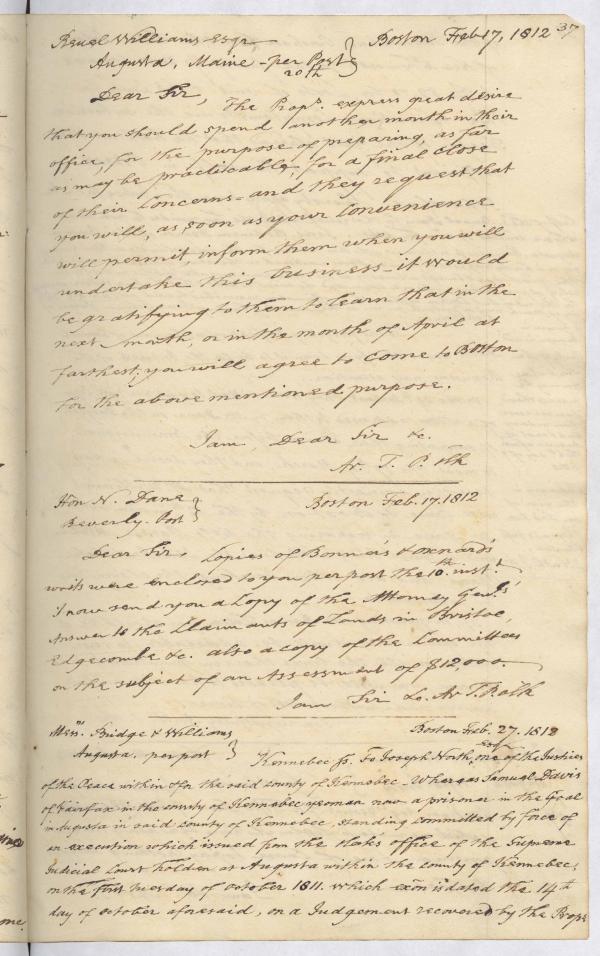 37
Reuel Williams Esqr Boston Feb 17, 1812
Augusta, Maine - per Post
20th
Dear Sir, The Props. express great desire
that you should spend another month in their
office, for the purpose of preparing, as far
as may be practicable, for a final close
of their Concerns - and they request that
you will, as soon as your Convenience
will permit, inform them when you will
undertake this business - it would
be gratifying to them to learn that in the
next month, or in the month of April at
farthest, you will agree to come to Boston
for the above mentioned purpose.
I am, Dear Sir &c.
Ar. T.
Hon N. Dane Boston Feb. 17. 1812
Beverly. Post
Dear Sir, Copies of Bonner's & Oxnard's
writs were enclosed to you per post the 10th inst.
I now send you a Copy of the Attorney Genls'
Answer to the Claimants of Lands in Bristol,
Edgecombe &c. also a copy of the Committees
on the subject of an Assessment of $12,000.
I am Sir &c. Ar. T.
Messrs. Bridge & Williams Boston Feb. 27. 1812
Augusta. per post Kennebec ss. To Joseph North, Esqr one of the Justices
of the Peace within & for the said county of Kennebec - Whereas Samuel Davis
of Fairfax in the county of Kennebec yeoman now a prisoner in the Goal
in Augusta in said county of Kennebec, standing committed by force of
an execution which issued from the Clarks office of the Supreme
Judicial Court holden at Augusta within the county of Kennebec,
on the first tuesday of October 1811. which exon is dated the 14th
day of October aforesaid, on a Judgement recovered by the Props